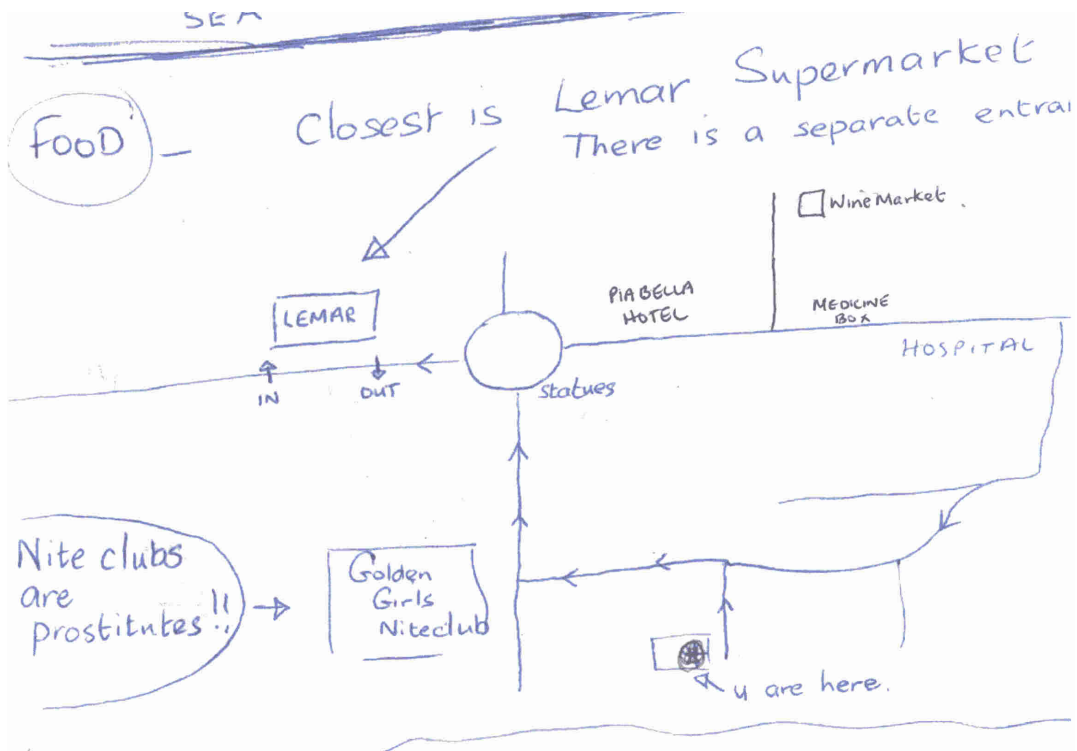 SEA
FOOD
Closest is Lemar Supermarket
There is a separate entra
Wine Market.
PIABELLA
HOTEL
MEDICINE
BOX
HOSPITAL
LEMAR
IN
OUT
statues
Nite clubs
are
prostitutes!!
Golden
Girls
Niteclub
u are here.